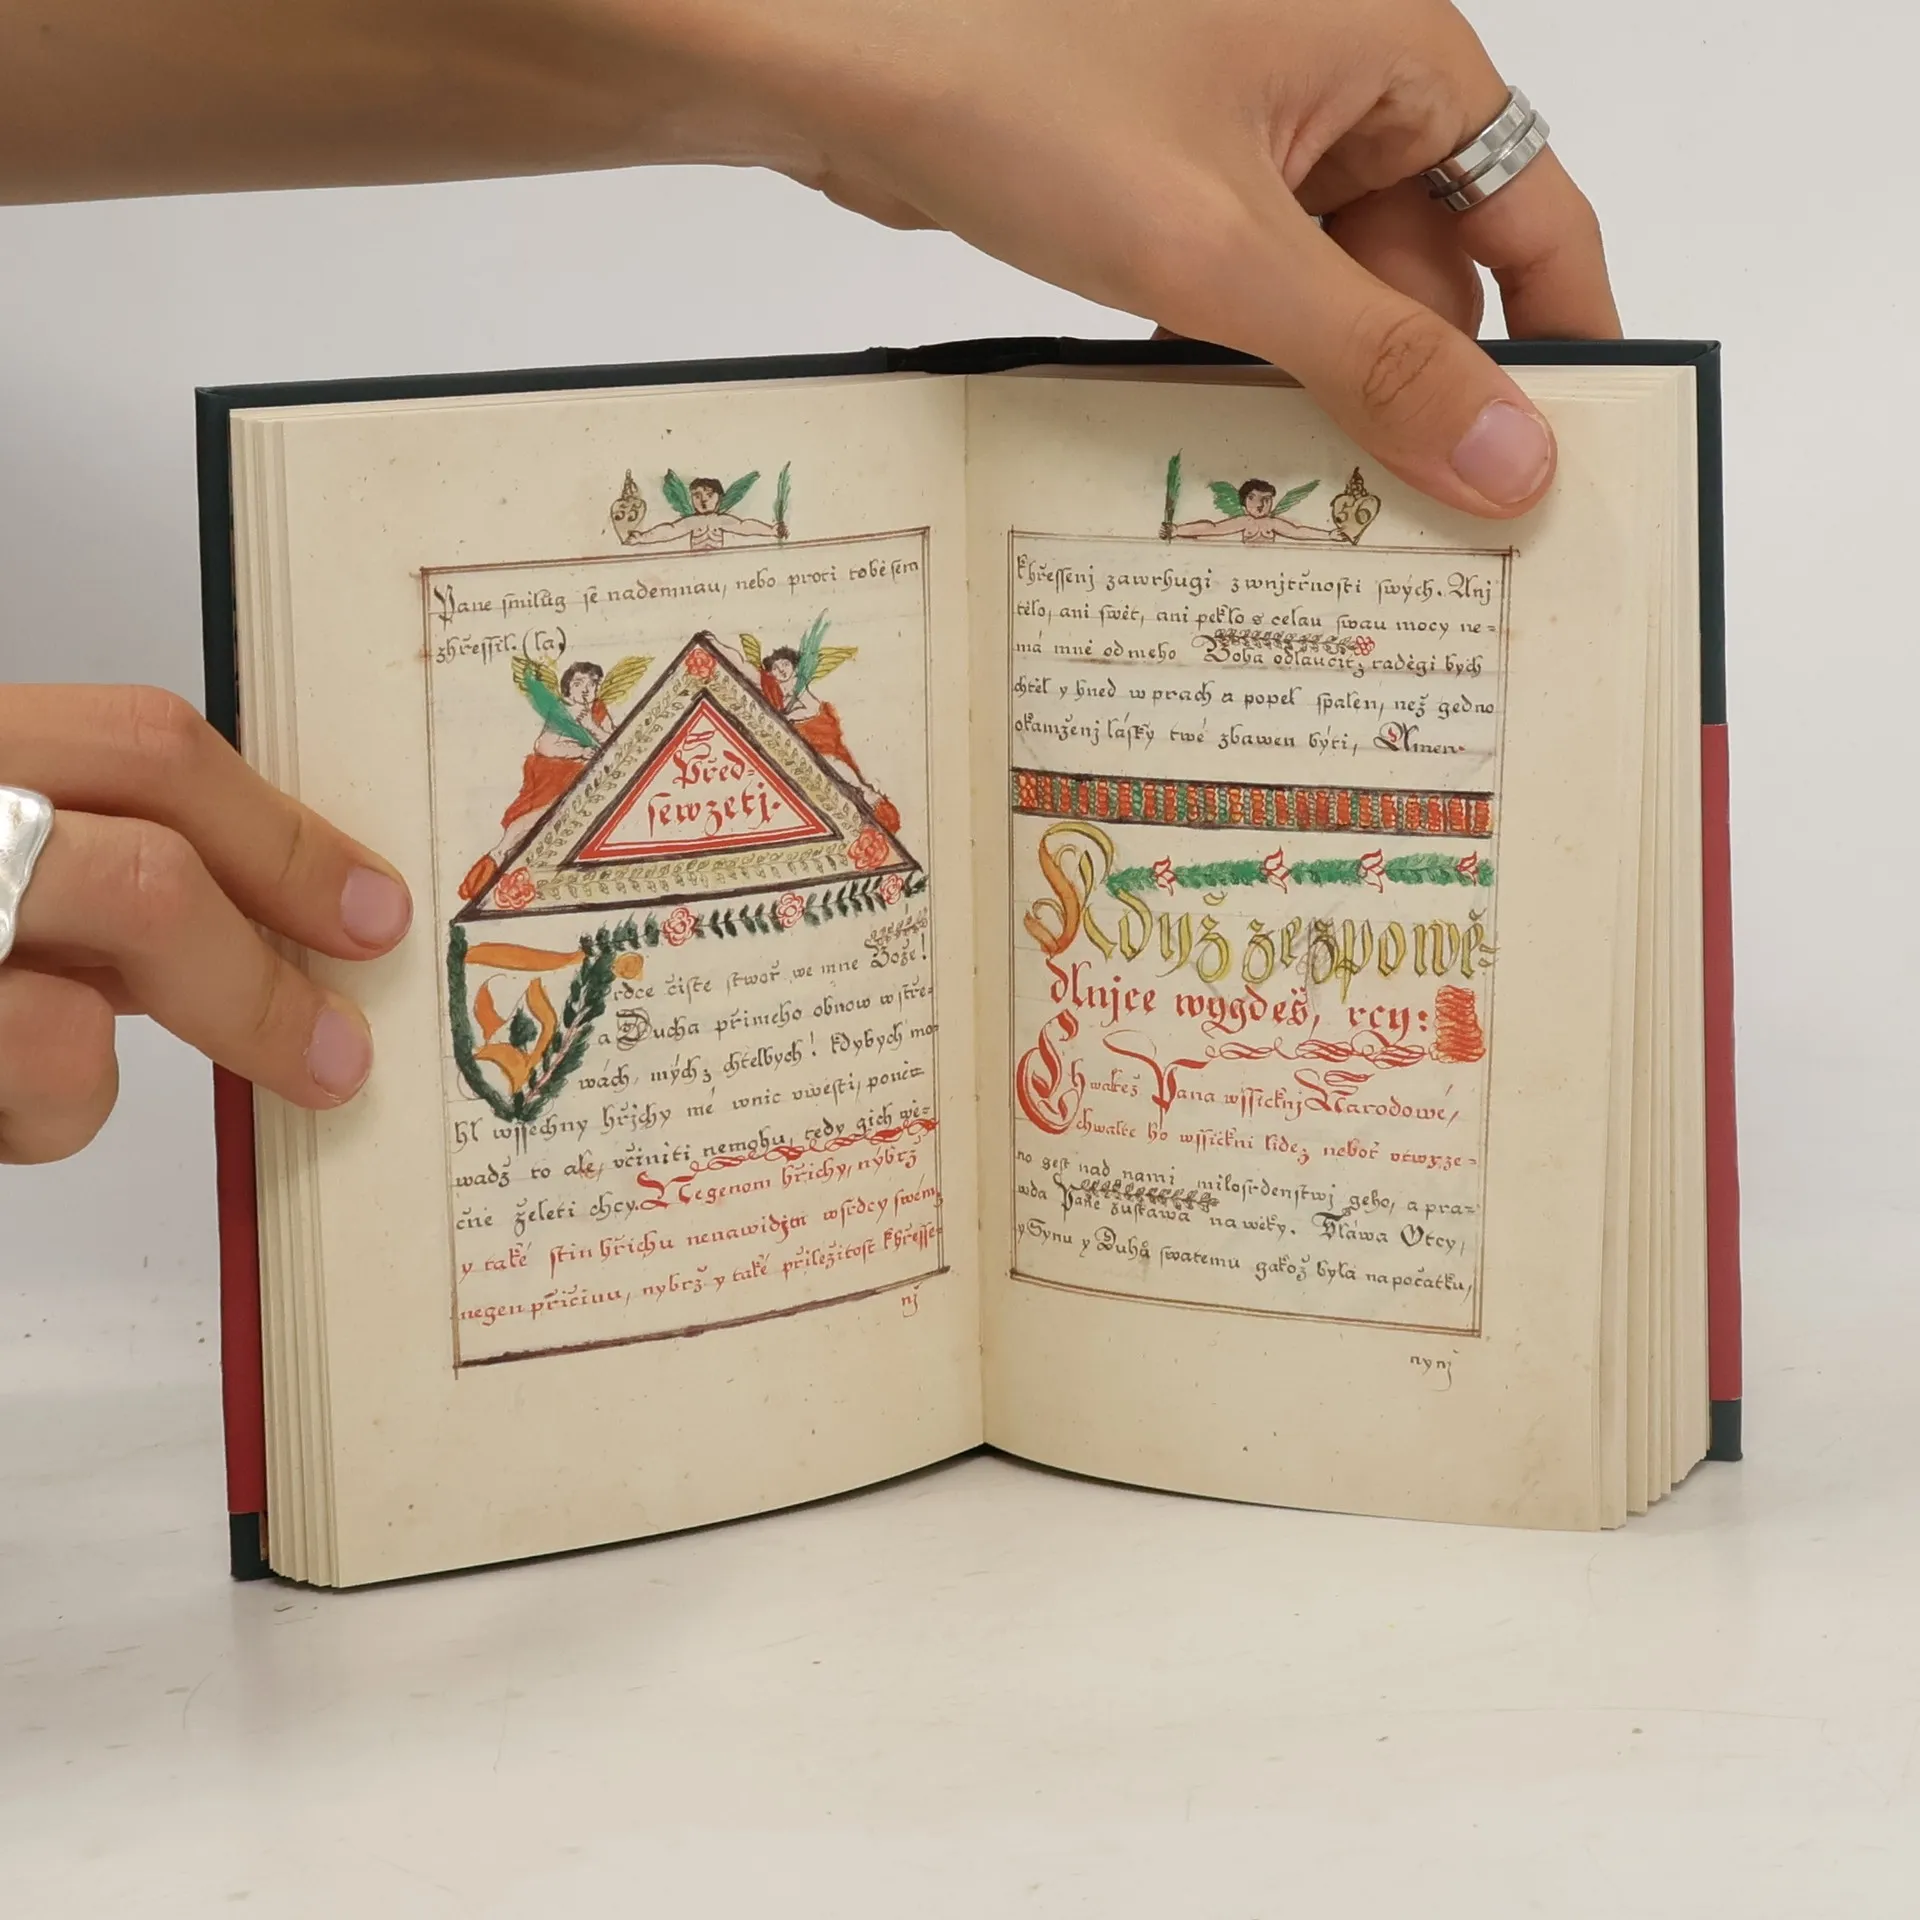 55
Pane smilug se nademnau, nebo proti tobě sem
zhřessil. (la)
Před=
sewzetj.
Srdce čiste stwoř we mne Bože!
a Ducha přimeho obnow w stře=
wách, mých z chtelbych! kdybych mo=
hl wssechny hřjchy mé wnic vwesti, poněa
wadž to ale, včiniti nemohu, tedy gich wě=
čné želeti chcy. Negenom hřichy, nýbrž
y také stin hřichu nenawidjm wsrdcy swém,
negen přičinu, nybrž y také přiležitost khřesse=
nj
56
khřessenj zawrhugi z wnjtřnosti swých. Anj
tělo, ani swět, ani peklo s celau swau mocy ne=
má mně od meho Boha odlaučit, raděgi bých
chtěl y hned w prach a popel spalen, než gedno
okamženj lásky twé zbawen býti, Amen.
Když ze zpowě=
dlnjce wygdeš, rcy:
Chwaltež Pana wssicknj Narodowé,
Chwalte ho wssickni lide, neboť vtwrze=
no gest nad nami milosrdenstwj geho, a pra=
wda Páně zustáwá na wěky. Sláwa Otcy,
y Synu y Duhů swatemu gakož byla napočatku,
nynj